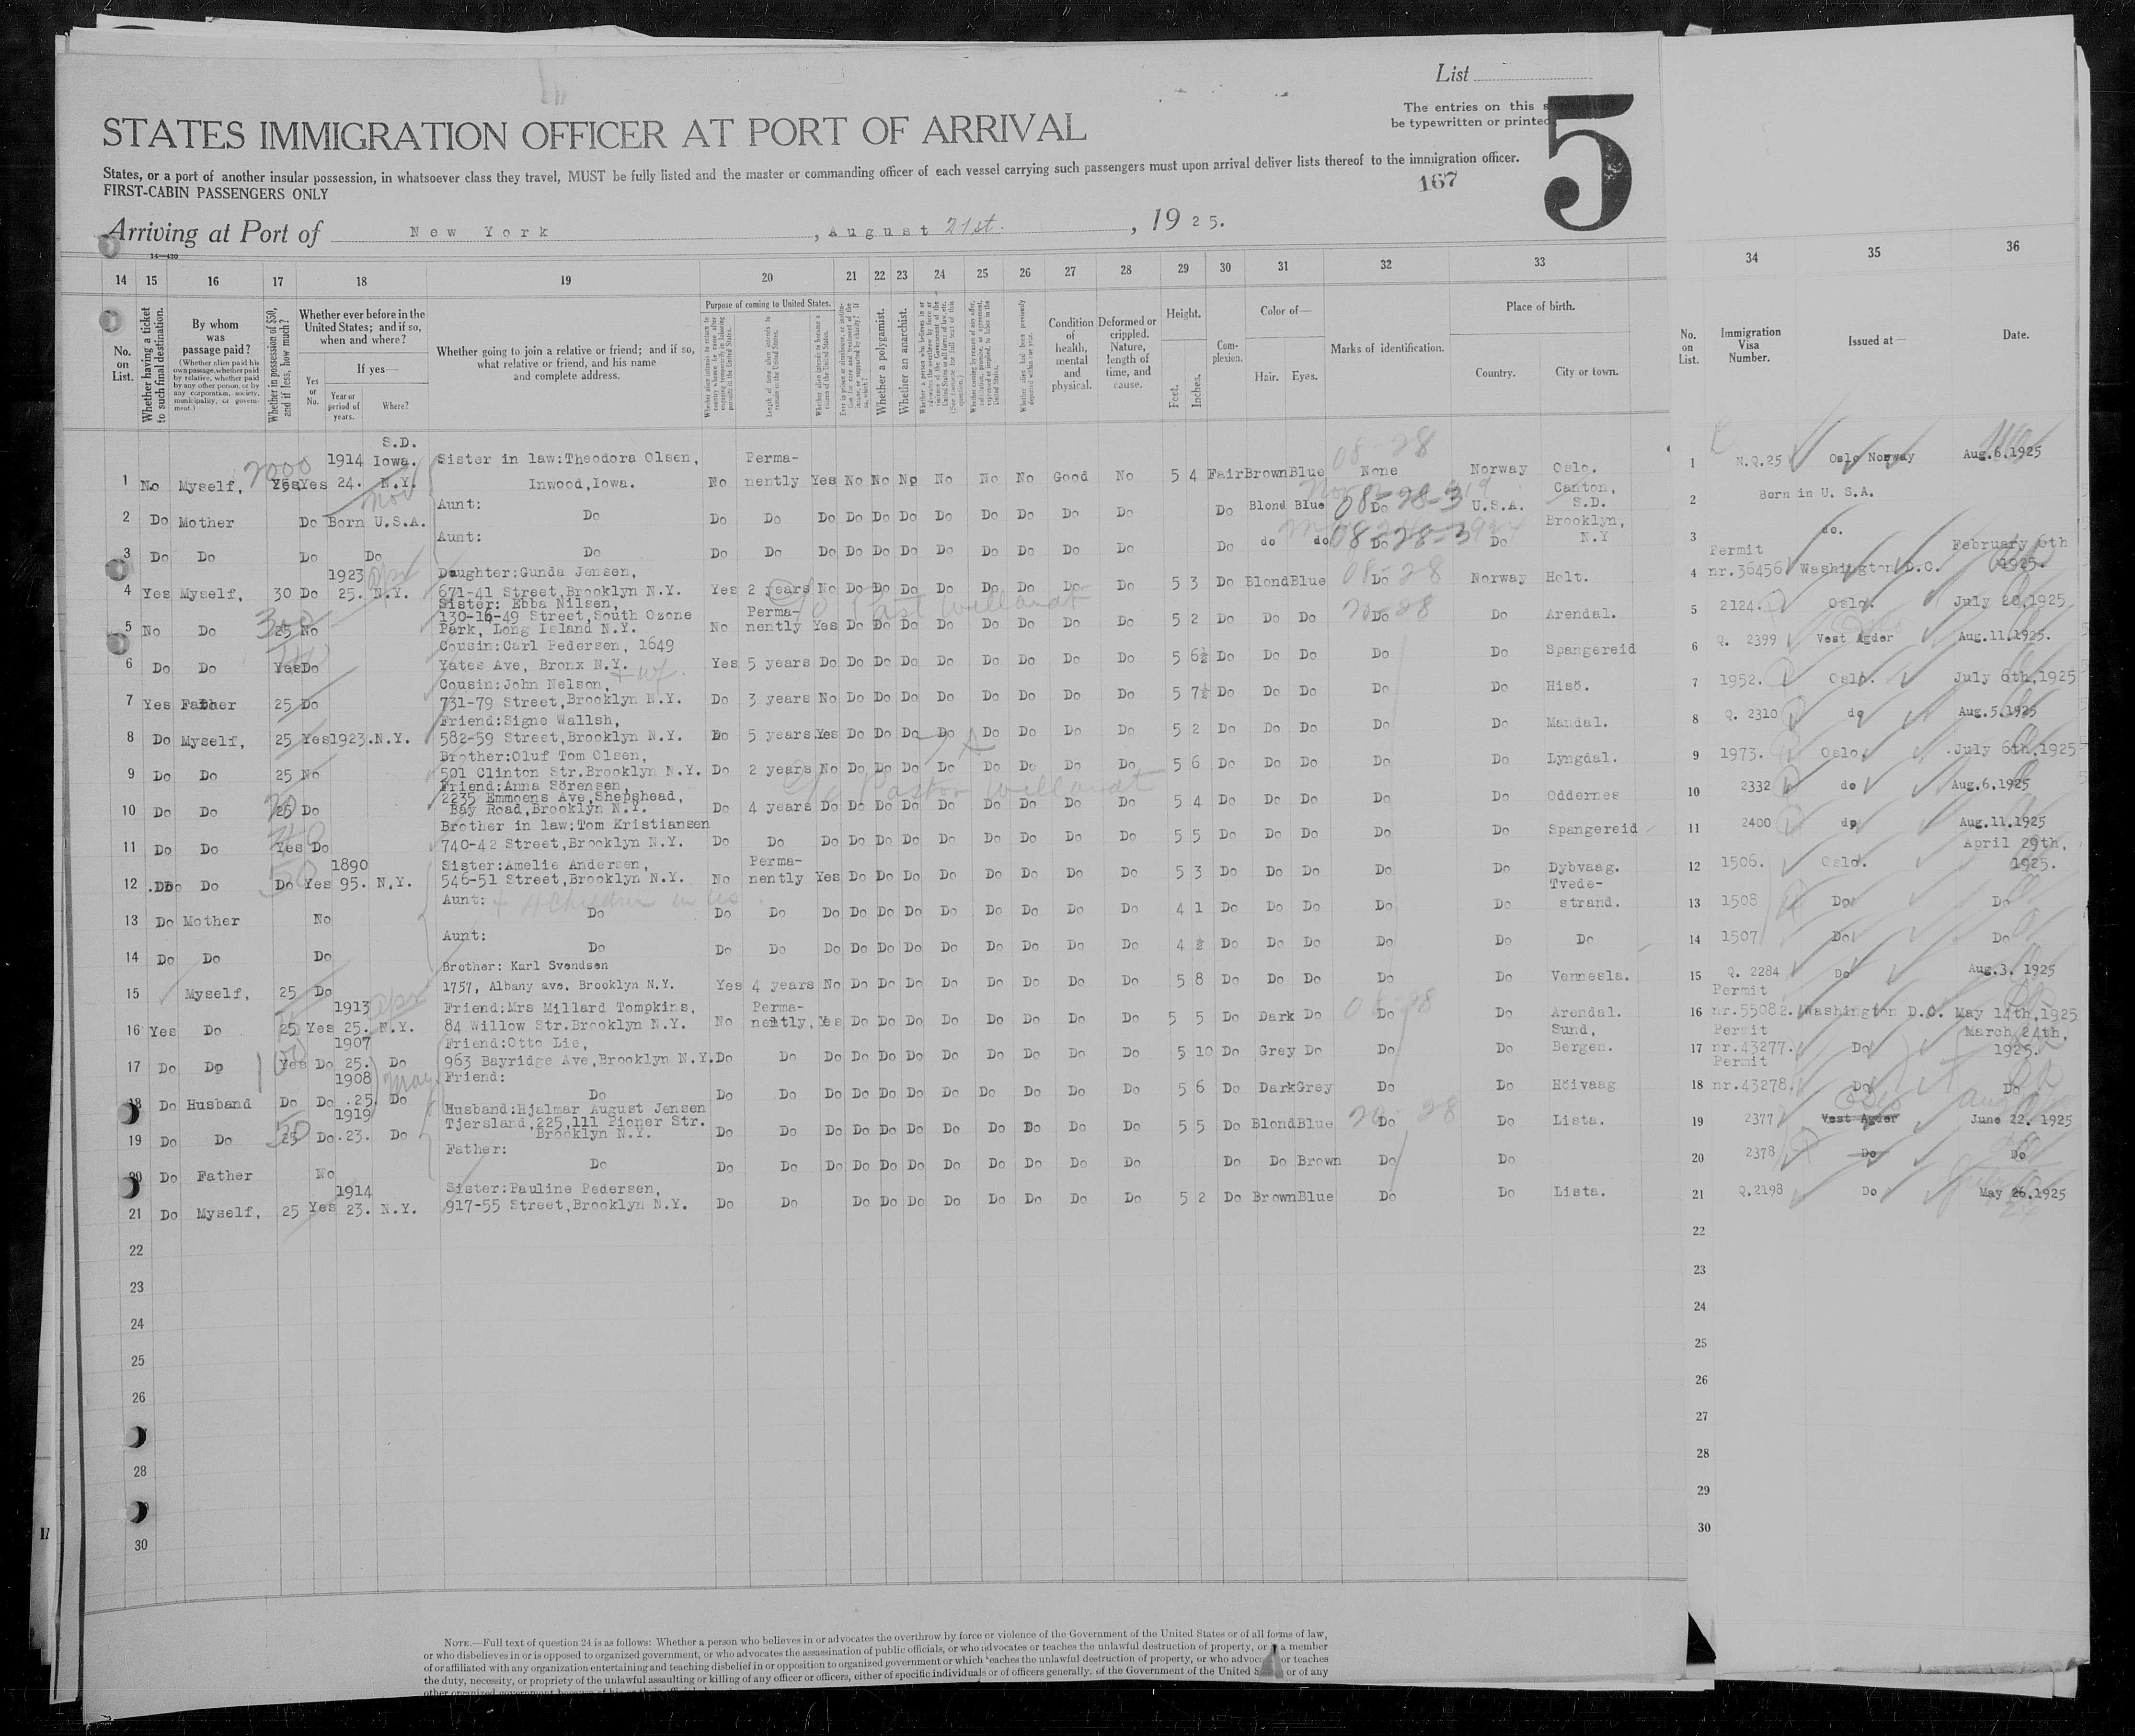 List
The entries on this
be typewritten or printed
5
STATES IMMIGRATION OFFICER AT PORT OF ARRIVAL
States, or a port of another insular possession, in whatsoever class they travel, MUST be fully listed and the master or commanding officer of each vessel carrying such passengers must upon arrival deliver lists thereof to the immigration officer.
FIRST-CABIN PASSENGERS ONLY
167
Arriving at Port of New York, August 21st., 1925.
14—430
14 15 16 17 18 19 20 21 22 23 24 25 26 27 28 29 30 31 32 33 34 35 36
No. on List.
Whether having a ticket to such final destination.
By whom was passage paid?
(Whether alien paid his own passage, whether paid by relative, whether paid by any other person, or by any corporation, society, municipality, or government.)
Whether in possession of $50, and if less, how much?
Whether ever before in the United States; and if so, when and where?
Yes or No.
If yes—
Year or period of years.
Where?
Whether going to join a relative or friend; and if so, what relative or friend, and his name and complete address.
Purpose of coming to United States.
Length of time alien intends to remain in the United States.
Whether alien intends to become a citizen of the United States.
Whether a polygamist.
Whether an anarchist.
Condition of health, mental and physical.
Deformed or crippled. Nature, length of time, and cause.
Height.
Feet.
Inches.
Complexion.
Color of—
Hair.
Eyes.
Marks of identification.
Place of birth.
Country.
City or town.
No. on List.
Immigration Visa Number.
Issued at—
Date.
S.D.
1914 Iowa. Sister in law:Theodora Olsen, Perma- 08-28
1 No Myself, Yes 24. N.Y. Inwood,Iowa. No nently Yes No No No No No No Good No 5 4 Fair Brown Blue None Norway Oslo. 1 N.Q.25 Oslo Norway Aug.6.1925
Aunt: Canton,
2 Do Mother Do Born U.S.A. Do Do Do Do Do Do Do Do Do Do Do Do Do Blond Blue Do 08-28-3 U.S.A. S.D. 2 Born in U. S.A.
Aunt: Brooklyn,
3 Do Do Do Do Do Do Do Do Do Do Do Do Do Do Do Do Do do do Do 08-28-3 Do N.Y 3 do.
1923 Daughter:Gunda Jensen, 08-28 Permit February 6th
4 Yes Myself, 30 Do 25. N.Y. 671-41 Street,Brooklyn N.Y. Yes 2 years No Do Do Do Do Do Do Do Do 5 3 Do Blond Blue Do Norway Holt. 4 nr.36456 Washington D.C. 1925.
Sister: Ebba Nilsen,
130-16-49 Street,South Ozone Perma- 20-28
5 No Do 25 No Park, Long Island N.Y. No nently Yes Do Do Do Do Do Do Do Do 5 2 Do Do Do Do Do Arendal. 5 2124. Oslo. July 20,1925
Cousin:Carl Pedersen, 1649
6 Do Do Yes Do Yates Ave, Bronx N.Y. Yes 5 years Do Do Do Do Do Do Do Do Do 5 6½ Do Do Do Do Do Spangereid 6 Q. 2399 Vest Agder Aug.11.1925.
Cousin:John Nelson,
7 Yes Father 25 Do 731-79 Street,Brooklyn N.Y. Do 3 years No Do Do Do Do Do Do Do Do 5 7½ Do Do Do Do Do Hisö. 7 1952. Oslo. July 6th,1925
Friend:Signe Wallsh,
8 Do Myself, 25 Yes 1923. N.Y. 582-59 Street,Brooklyn N.Y. Do 5 years. Yes Do Do Do Do Do Do Do Do 5 2 Do Do Do Do Do Mandal. 8 Q. 2310 do Aug.5.1925
Brother:Oluf Tom Olsen,
9 Do Do 25 No 501 Clinton Str.Brooklyn N.Y. Do 2 years No Do Do Do Do Do Do Do Do 5 6 Do Do Do Do Do Lyngdal. 9 1973. Oslo. July 6th,1925
Friend:Anna Sörensen, c/o Pastor Willandt
2235 Emmoens Ave,Shepshead,
10 Do Do 25 Do Bay Road,Brooklyn N.Y. Do 4 years Do Do Do Do Do Do Do Do Do 5 4 Do Do Do Do Do Oddernes 10 2332 do Aug.6.1925
Brother in law:Tom Kristiansen
11 Do Do Yes Do 740-42 Street,Brooklyn N.Y. Do Do Do Do Do Do Do Do Do Do Do 5 5 Do Do Do Do Do Spangereid 11 2400 do Aug.11.1925
1890 Sister:Amelie Andersen, Perma- April 29th,
12 Do Do Do Yes 95. N.Y. 546-51 Street,Brooklyn N.Y. No nently Yes Do Do Do Do Do Do Do Do 5 3 Do Do Do Do Do Dybvaag. 12 1506. Oslo. 1925.
Aunt: + 4 children in US Tvede-
13 Do Mother No Do Do Do Do Do Do Do Do Do Do Do Do 4 1 Do Do Do Do Do strand. 13 1508 Do Do
Aunt:
14 Do Do Do Do Do Do Do Do Do Do Do Do Do Do Do 4 Do Do Do Do Do Do 14 1507 Do Do
Brother: Karl Svendsen
15 Myself, 25 Do 1757, Albany ave. Brooklyn N.Y. Yes 4 years No Do Do Do Do Do Do Do Do 5 8 Do Do Do Do Do Vennesla. 15 Q. 2284 Do Aug.3. 1925
1913 Friend:Mrs Millard Tompkins, Perma- Permit
16 Yes Do 25 Yes 25. N.Y. 84 Willow Str.Brooklyn N.Y. No nently, Yes Do Do Do Do Do Do Do Do 5 5 Do Dark Do Do Do Arendal. 16 nr.55082. Washington D.C. May 14th,1925
1907 Friend:Otto Lie, Sund, Permit March 24th,
17 Do Do Yes Do 25. Do 963 Bayridge Ave,Brooklyn N.Y. Do Do Do Do Do Do Do Do Do Do Do 5 10 Do Grey Do Do Do Bergen. 17 nr.43277. Do 1925.
1908 May Friend: Permit
18 Do Husband Do Do .25. Do Do Do Do Do Do Do Do Do Do Do Do Do 5 6 Do Dark Grey Do Do Höivaag 18 nr.43278. Do Do
1919 Husband:Hjalmar August Jensen
Tjersland,225,111 Pioner Str. 20-28 Oslo
19 Do Do 25 Do .23. Do Brooklyn N.Y. Do Do Do Do Do Do Do Do Do Do Do 5 5 Do Blond Blue Do Do Lista. 19 2377 Vest Agder June 22. 1925
Father:
20 Do Father No Do Do Do Do Do Do Do Do Do Do Do Do Do Do Brown Do Do 20 2378 Do Do
1914 Sister:Pauline Pedersen,
21 Do Myself, 25 Yes 23. N.Y. 917-55 Street,Brooklyn N.Y. Do Do Do Do Do Do Do Do Do Do 5 2 Do Brown Blue Do Do Lista. 21 Q.2198 Do May 26.1925
22 22
23 23
24 24
25 25
26 26
27
28 28
29
30 30
NOTE.—Full text of question 24 is as follows: Whether a person who believes in or advocates the overthrow by force or violence of the Government of the United States or of all forms of law,
or who disbelieves in or is opposed to organized government, or who advocates the assassination of public officials, or who advocates or teaches the unlawful destruction of property, or a member
of or affiliated with any organization entertaining and teaching disbelief in or opposition to organized government or which teaches the unlawful destruction of property, or who advocates or teaches
the duty, necessity, or propriety of the unlawful assaulting or killing of any officer or officers, either of specific individuals or of officers generally, of the Government of the United or of any